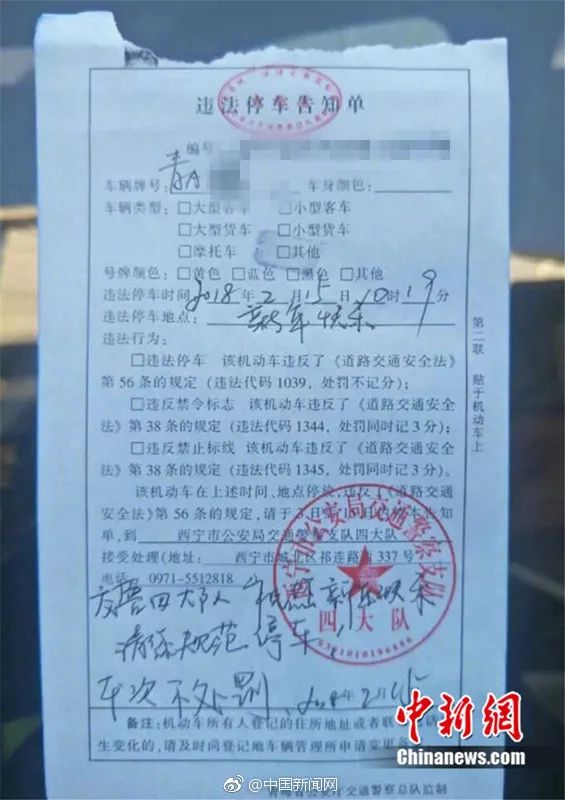 违法停车告知单
编号
车辆牌号: 青A 车身颜色:
车辆类型: □大型客车 □小型客车
□大型货车 □小型货车
□摩托车 □其他
号牌颜色: □黄色 □蓝色 □黑色 □其他
违法停车时间 2018年2月15日10时19分
违法停车地点: 新年快乐
违法行为:
□违法停车 该机动车违反了《道路交通安全法》
第56条的规定（违法代码1039，处罚不记分）;
□违反禁令标志 该机动车违反了《道路交通安全
法》第38条的规定（违法代码1344，处罚同时记3分）;
□违反禁止标线 该机动车违反了《道路交通安全
法》第38条的规定（违法代码1345，处罚同时记3分）。
该机动车在上述时间、地点停放，违反了《道路交通
安全法》第56条的规定，请于3日
告知
单，到 西宁市公安局交通警察支队四大队
接受处理（地址: 西宁市城北区祁连路 337号
电话 0971-5512818
交警四大队 新年快乐
请您规范停车，
本次不处罚 年2月15
备注: 机动车所有人登记的住所地址或者联 话
生变化的，请及时向登记地车辆管理所申请变更
总队监制
第二联 贴于机动车上
西宁市公安局交通警察支队
四大队
中新网
Chinanews.com
@中国新闻网